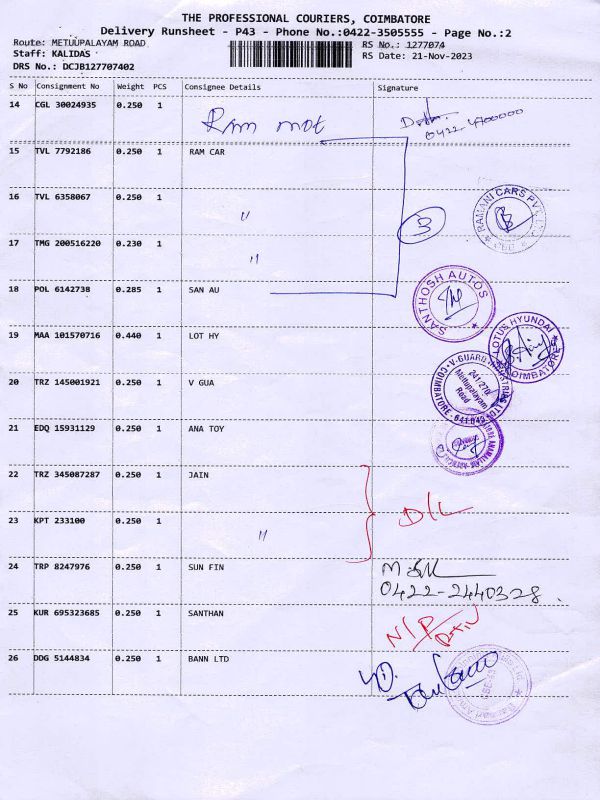 THE PROFESSIONAL COURIERS, COIMBATORE
Delivery Runsheet - P43 - Phone No.:0422-3505555 - Page No.:2
Route: METUUPALAYAM ROAD RS No.: 1277074
Staff: KALIDAS RS Date: 21-Nov-2023
DRS No.: DCJB127707402
S No Consignment No Weight PCS Consignee Details Signature
14 CGL 30024935 0.250 1 Ram mot
0422
15 TVL 7792186 0.250 1 RAM CAR
16 TVL 6358067 0.250 1 "
3
RAMANI CARS PVT LTD
17 TMG 200516220 0.230 1 "
18 POL 6142738 0.285 1 SAN AU
SANTHOSH AUTOS
19 MAA 101570716 0.440 1 LOT HY
LOTUS HYUNDAI COIMBATORE
20 TRZ 145001921 0.250 1 V GUA
V-GUARD INDUSTRIES LTD
241/270
Mettupalayam
Road
COIMBATORE - 641 043
21 EDQ 15931129 0.250 1 ANA TOY
22 TRZ 345087287 0.250 1 JAIN
D/L
23 KPT 233100 0.250 1 "
24 TRP 8247976 0.250 1 SUN FIN
0422-2440328
25 KUR 695323685 0.250 1 SANTHAN
N/P
26 DDG 5144834 0.250 1 BANN LTD